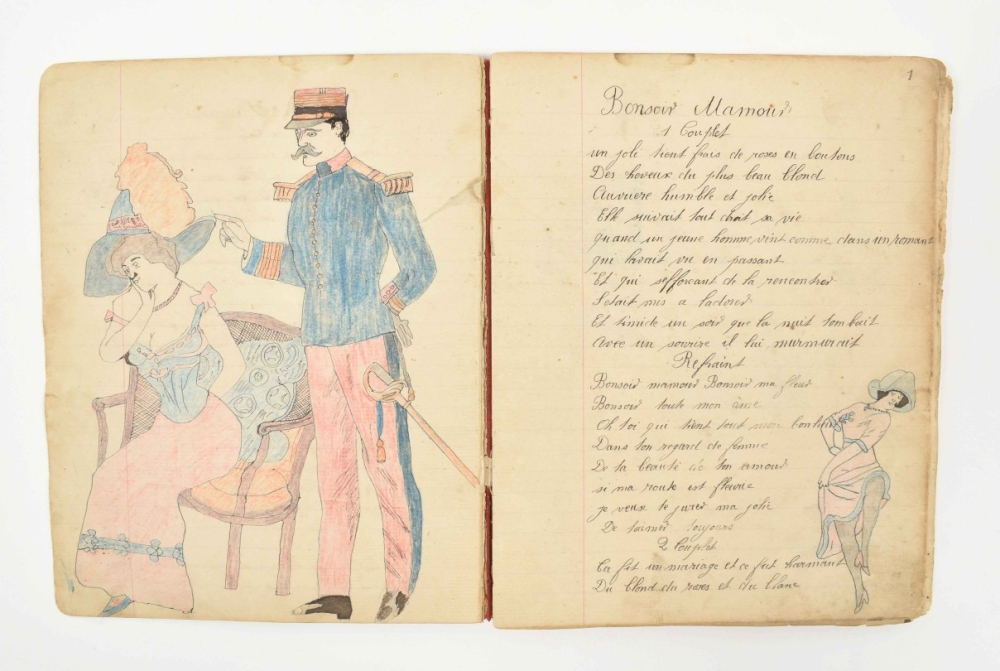 1
Bonsoir Mamour
1 Couplet
un joli teint frais de roses en boutons
Des heveux du plus beau blond
Ouvriere humble et jolie
Elle suivait tout droit sa vie
quand un jeune homme, vint comme dans un romant
qui lavait vu en passant
Et qui sefforcant de la rencontrer
Setait mis a ladorer
Et timide un soir que la nuit tombait
Avec un sourire il lui murmurait
Refraint
Bonsoir mamour Bonsoir ma fleur
Bonsoir toute mon âme
Oh toi qui tient tout mon bonheur
Dans ton regard de femme
De ta beauté de ton amour
si ma route est fleurie
je veux te jurer ma jolie
De taimer toujours
2 Couplet
Ca fut un mariage et ce fut harmant
Du blond du roses et du blanc